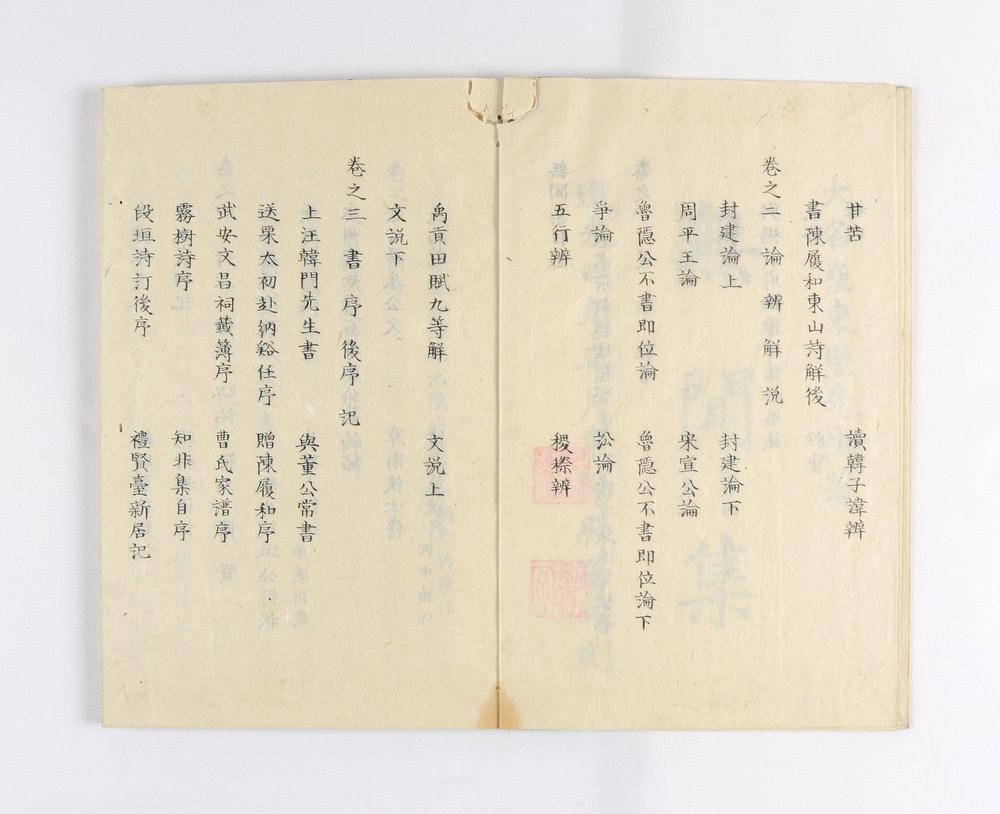 甘苦 讀韓子諱辨
書陳履和東山詩解後
卷之二 論 辨 解 說
封建論上 封建論下
周平王論 宋宣公論
魯隱公不書即位論 魯隱公不書即位論下
爭論 訟論
五行辨 稷禘辨
禹貢田賦九等解 文說上
文說下
卷之三 書 序 後序 記
上汪韓門先生書 與董公常書
送栗太初赴納谿任序 贈陳履和序
武安文昌祠蕆簿序 曹氏家譜序
霧樹詩序 知非集自序
段垣詩訂後序 禮賢臺新居記